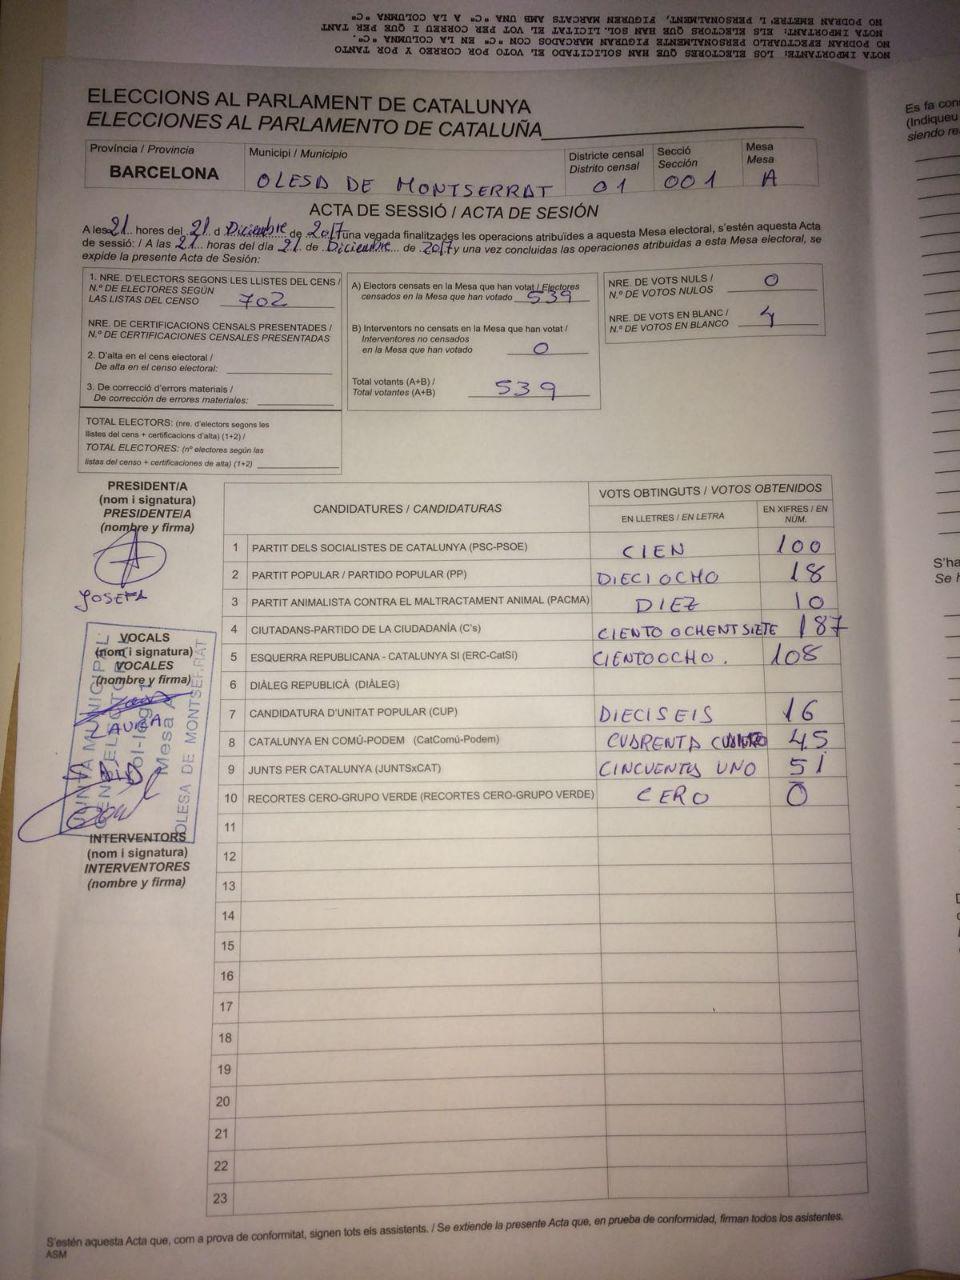 NOTA IMPORTANTE: LOS ELECTORES QUE HAN SOLICITADO EL VOTO POR CORREO Y POR TANTO
NO PODRAN EFECTUARLO PERSONALMENTE FIGURAN MARCADOS CON "C" EN LA COLUMNA "C".
NOTA IMPORTANT: ELS ELECTORS QUE HAN SOL.LICITAT EL VOT PER CORREU I QUE PER TANT
NO PODRAN EMETRE'L PERSONALMENT, FIGUREN MARCATS AMB UNA "C" A LA COLUMNA "C"
ELECCIONS AL PARLAMENT DE CATALUNYA
ELECCIONES AL PARLAMENTO DE CATALUÑA
Província / Provincia
BARCELONA
Municipi / Municipio
OLESA DE MONTSERRAT
Districte censal
Distrito censal
01
Secció
Sección
001
Mesa
Mesa
A
ACTA DE SESSIÓ / ACTA DE SESIÓN
A les 21 hores del 21 d Diciembre de 2017 una vegada finalitzades les operacions atribuïdes a aquesta Mesa electoral, s'estén aquesta Acta
de sessió: / A las 21 horas del día 21 de Diciembre de 2017 y una vez concluidas las operaciones atribuidas a esta Mesa electoral, se
expide la presente Acta de Sesión:
1. NRE. D'ELECTORS SEGONS LES LLISTES DEL CENS /
N.º DE ELECTORES SEGÚN
LAS LISTAS DEL CENSO 702
NRE. DE CERTIFICACIONS CENSALS PRESENTADES /
N.º DE CERTIFICACIONES CENSALES PRESENTADAS
2. D'alta en el cens electoral /
De alta en el censo electoral:
3. De correcció d'errors materials /
De corrección de errores materiales:
TOTAL ELECTORS: (nre. d'electors segons les
llistes del cens + certificacions d'alta) (1+2) /
TOTAL ELECTORES: (nº electores según las
listas del censo + certificaciones de alta) (1+2)
A) Electors censats en la Mesa que han votat / Electores
censados en la Mesa que han votado 539
B) Interventors no censats en la Mesa que han votat /
Interventores no censados
en la Mesa que han votado 0
Total votants (A+B) /
Total votantes (A+B) 539
NRE. DE VOTS NULS /
N.º DE VOTOS NULOS 0
NRE. DE VOTS EN BLANC /
N.º DE VOTOS EN BLANCO 4
PRESIDENT/A
(nom i signatura)
PRESIDENTE/A
(nombre y firma)
JOSEFA
VOCALS
(nom i signatura)
VOCALES
(nombre y firma)
LAURA
JUNTA MUNICIPAL
Mesa A
OLESA DE MONTSERRAT
INTERVENTORS
(nom i signatura)
INTERVENTORES
(nombre y firma)
CANDIDATURES / CANDIDATURAS
VOTS OBTINGUTS / VOTOS OBTENIDOS
EN LLETRES / EN LETRA
EN XIFRES / EN NÚM.
1 PARTIT DELS SOCIALISTES DE CATALUNYA (PSC-PSOE) CIEN 100
2 PARTIT POPULAR / PARTIDO POPULAR (PP) DIECIOCHO 18
3 PARTIT ANIMALISTA CONTRA EL MALTRACTAMENT ANIMAL (PACMA) DIEZ 10
4 CIUTADANS-PARTIDO DE LA CIUDADANÍA (C's) CIENTO OCHENTSIETE 187
5 ESQUERRA REPUBLICANA - CATALUNYA SI (ERC-CatSí) CIENTOOCHO. 108
6 DIÀLEG REPUBLICÀ (DIÀLEG)
7 CANDIDATURA D'UNITAT POPULAR (CUP) DIECISEIS 16
8 CATALUNYA EN COMÚ-PODEM (CatComú-Podem) CUARENTA 45
9 JUNTS PER CATALUNYA (JUNTSxCAT) CINCUENTA UNO 51
10 RECORTES CERO-GRUPO VERDE (RECORTES CERO-GRUPO VERDE) CERO 0
11
12
13
14
15
16
17
18
19
20
21
22
23
S'estén aquesta Acta que, com a prova de conformitat, signen tots els assistents. / Se extiende la presente Acta que, en prueba de conformidad, firman todos los asistentes.
ASM
Es fa
(Indiqueu
siendo
S'ha
Se